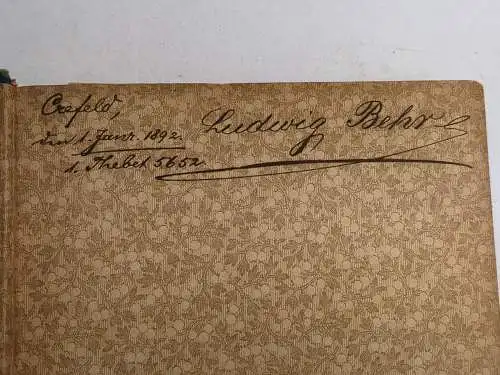 Crefeld,
den 1. Janr. 1892.
1. Thebet 5652
Ludwig Behr